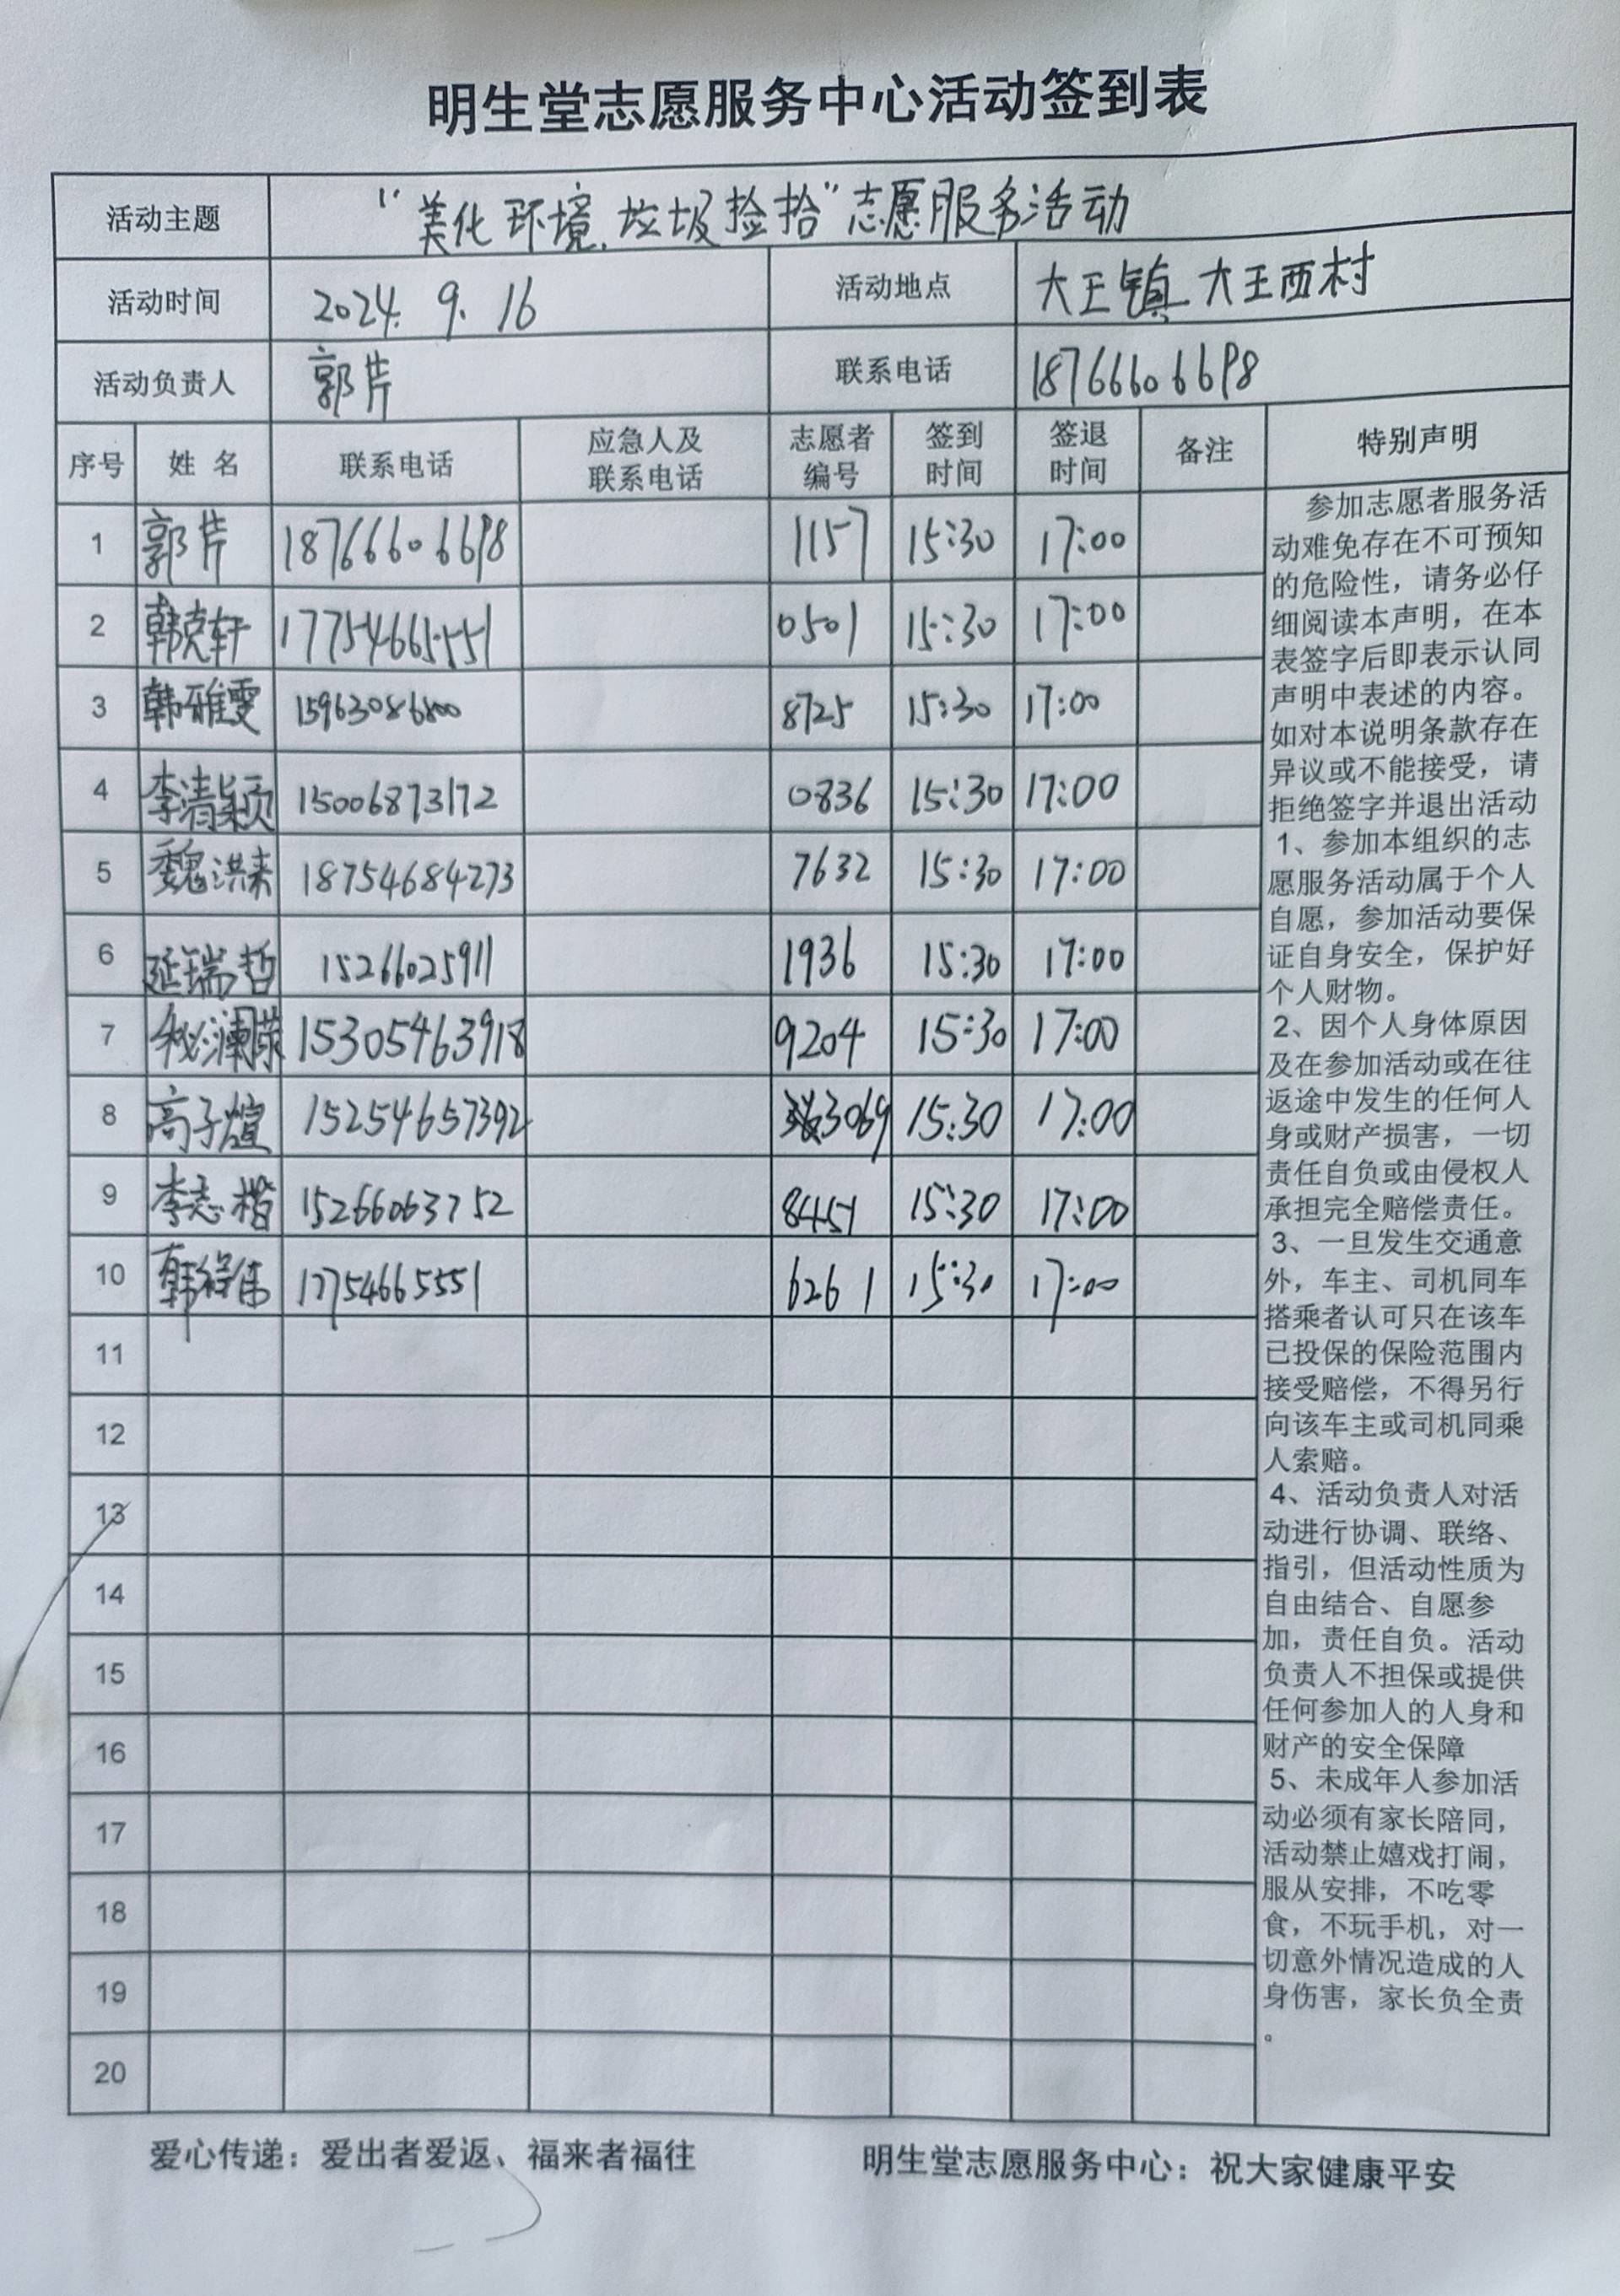 明生堂志愿服务中心活动签到表
活动主题 “美化环境、垃圾捡拾”志愿服务活动
活动时间 2024. 9. 16 活动地点 大王镇大王西村
活动负责人 郭芹 联系电话 18766606698
序号 姓 名 联系电话 应急人及联系电话 志愿者编号 签到时间 签退时间 备注 特别声明
1 郭芹 18766606698 1157 15:30 17:00
2 韩克轩 17754665551 0501 15:30 17:00
3 韩雅雯 15963086800 8725 15:30 17:00
4 李清颖 15006873172 0836 15:30 17:00
5 魏洪来 18754684273 7632 15:30 17:00
6 延瑞哲 15266025911 1936 15:30 17:00
7 秘澜蒙 15305463918 9204 15:30 17:00
8 高子煊 15254657392 3069 15:30 17:00
9 李志楷 15266063752 8451 15:30 17:00
10 韩 17754665551 6261 15:30 17:00
11
12
13
14
15
16
17
18
19
20
参加志愿者服务活
动难免存在不可预知
的危险性，请务必仔
细阅读本声明，在本
表签字后即表示认同
声明中表述的内容。
如对本说明条款存在
异议或不能接受，请
拒绝签字并退出活动
1、参加本组织的志
愿服务活动属于个人
自愿，参加活动要保
证自身安全，保护好
个人财物。
2、因个人身体原因
及在参加活动或在往
返途中发生的任何人
身或财产损害，一切
责任自负或由侵权人
承担完全赔偿责任。
3、一旦发生交通意
外，车主、司机同车
搭乘者认可只在该车
已投保的保险范围内
接受赔偿，不得另行
向该车主或司机同乘
人索赔。
4、活动负责人对活
动进行协调、联络、
指引，但活动性质为
自由结合、自愿参
加，责任自负。活动
负责人不担保或提供
任何参加人的人身和
财产的安全保障
5、未成年人参加活
动必须有家长陪同，
活动禁止嬉戏打闹，
服从安排，不吃零
食，不玩手机，对一
切意外情况造成的人
身伤害，家长负全责
。
爱心传递：爱出者爱返、福来者福往 明生堂志愿服务中心：祝大家健康平安